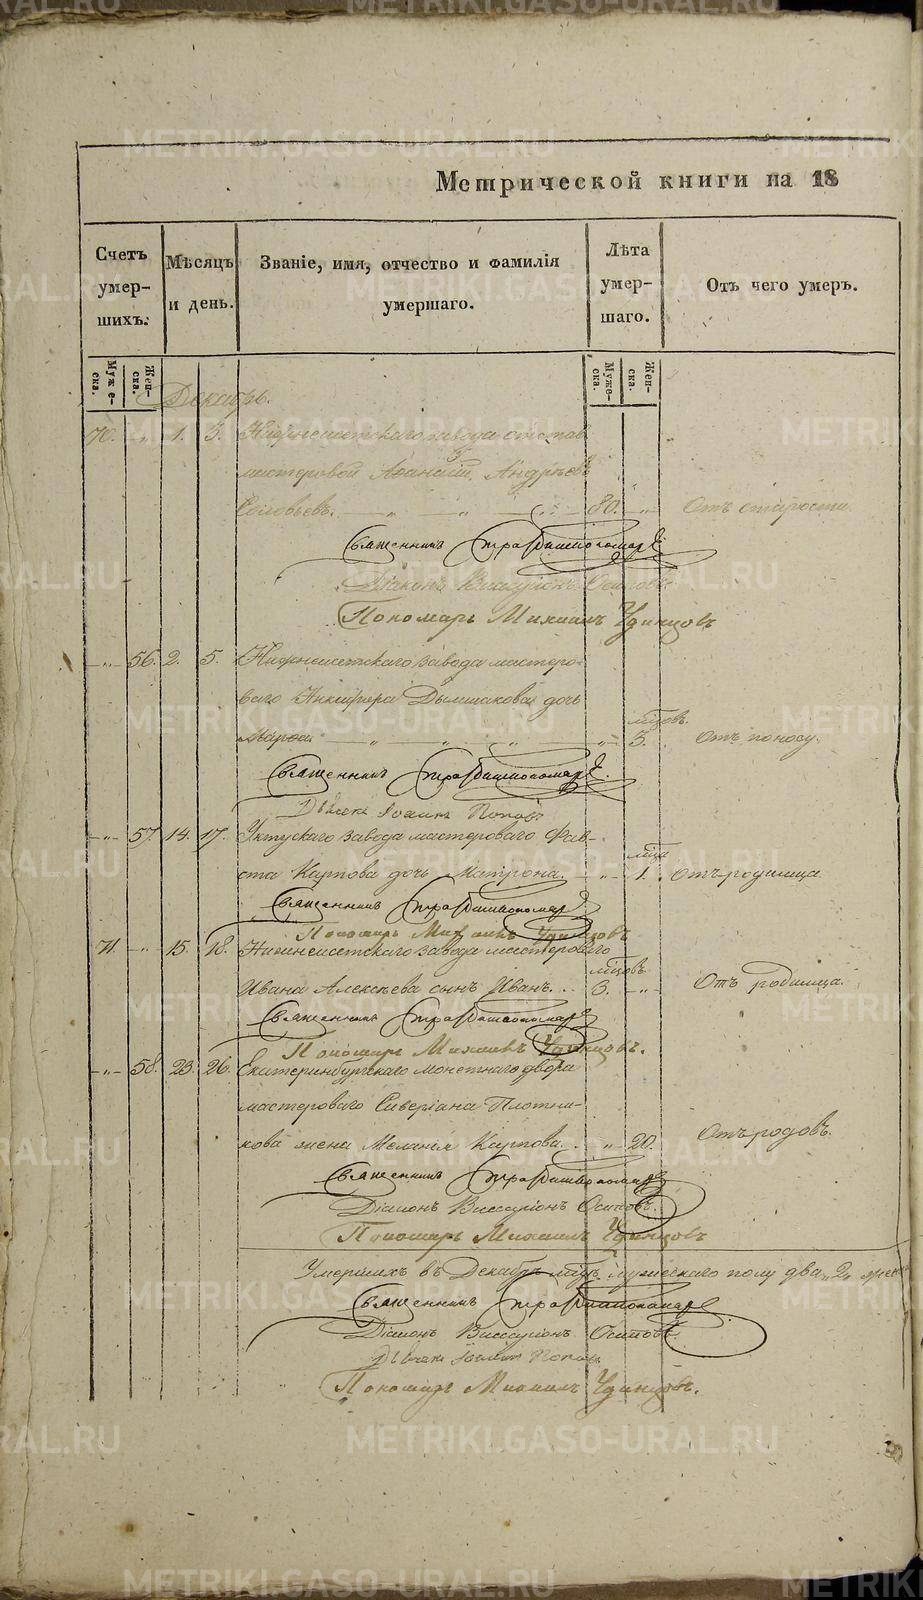 Метрической книги на 18
Счетъ умершихъ. Мѣсяцъ и день. Званіе, имя, отчество и фамилія умершаго. Лѣта умершаго. Отъ чего умеръ.
Мужеска. Женска. Мужеска. Женска.
Декабрь.
70. „ 1. 3. Нижнеисетскаго завода отстав
мастеровой Аѳанасій Андрѣевъ
Соловьевъ. 80. „ Отъ старости.
Священникъ
Діаконъ Виссаріонъ Осиповъ
Пономарь Михаилъ Удинцовъ
„ 56. 2. 5. Нижнеисетскаго завода мастеро-
ваго Дылшакова дочь
Марѳа. „ мѣсцовъ 3. Отъ поносу.
Священникъ
Дьячекъ Іоаннъ Поповъ
„ 57. 14. 17. Уктускаго завода мастероваго Фав-
ста Карпова дочь Матрона. „ 1. Отъ родимца
Священникъ
Пономарь Михаилъ Удинцовъ
71. „ 15. 18. Нижнеисетскаго завода мастероваго
Ивана Алексѣева сынъ Иванъ. мѣсцовъ 3. „ Отъ родимца.
Священникъ
Пономарь Михаилъ Удинцовъ.
„ 58. 23. 26. Екатеринбургскаго монетнаго двора
мастероваго Сиверіана Плотни-
кова жена Меланія Карпова. „ 20. Отъ родовъ.
Священникъ
Діаконъ Виссаріонъ Осиповъ.
Пономарь Михаилъ Удинцовъ
Умершихъ въ Декабрѣ мцѣ мужескаго полу два „2„
Священникъ
Діаконъ Виссаріонъ Осиповъ.
Дьячекъ Іоаннъ Поповъ
Пономарь Михаилъ Удинцовъ.
METRIKI.GASO-URAL.RU